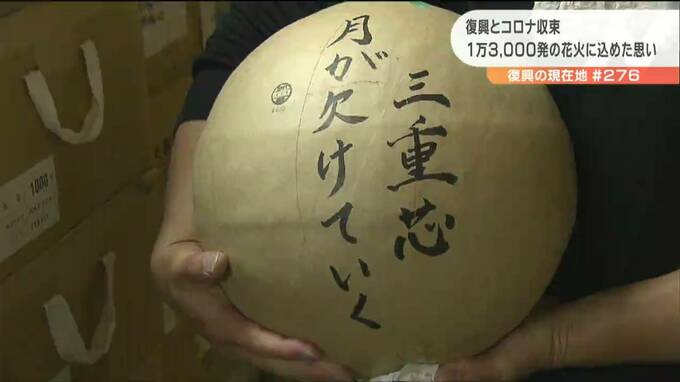 復興とコロナ収束
1万3,000発の花火に込めた思い
復興の現在地 #276
三重芯
月が欠けていく
1000